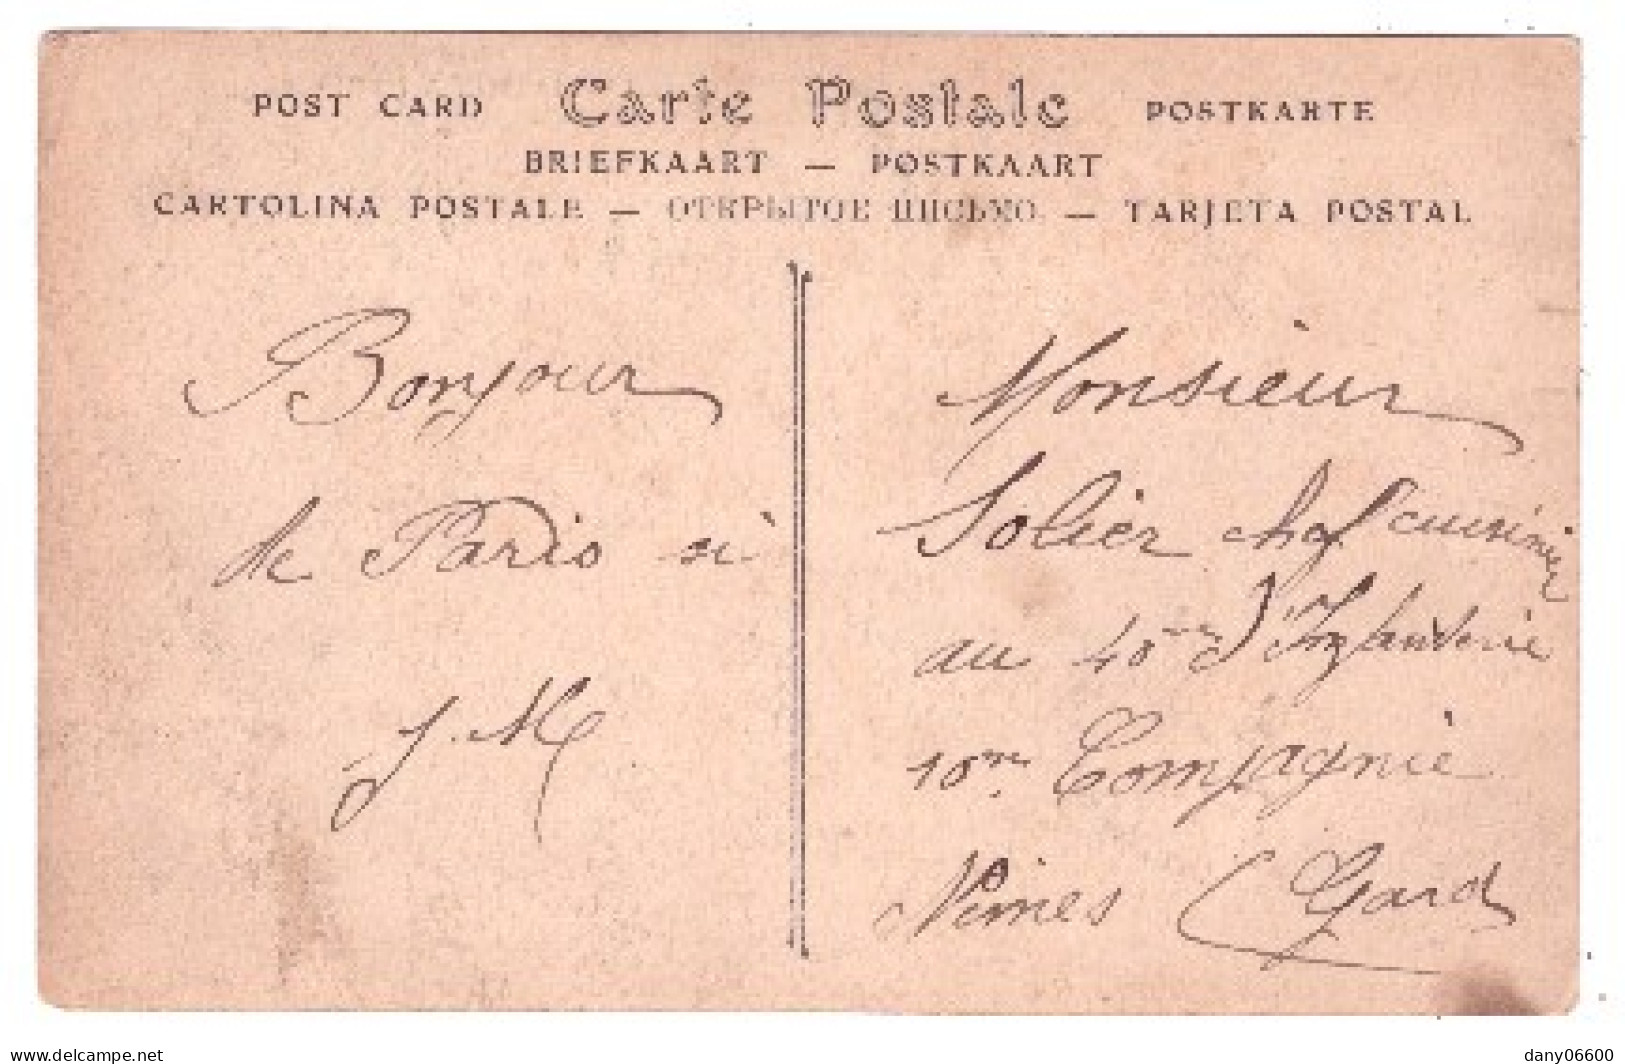 POST CARD Carte Postale POSTKARTE
BRIEFKAART — POSTKAART
CARTOLINA POSTALE — ОТКРЫТОЕ ПИСЬМО — TARJETA POSTAL
Bonjour
de Paris
J. M
Monsieur
Solier chef cuisinier
au 40me d'Infanterie
10me Compagnie
Nîmes (Gard
www.delcampe.net
dany06600